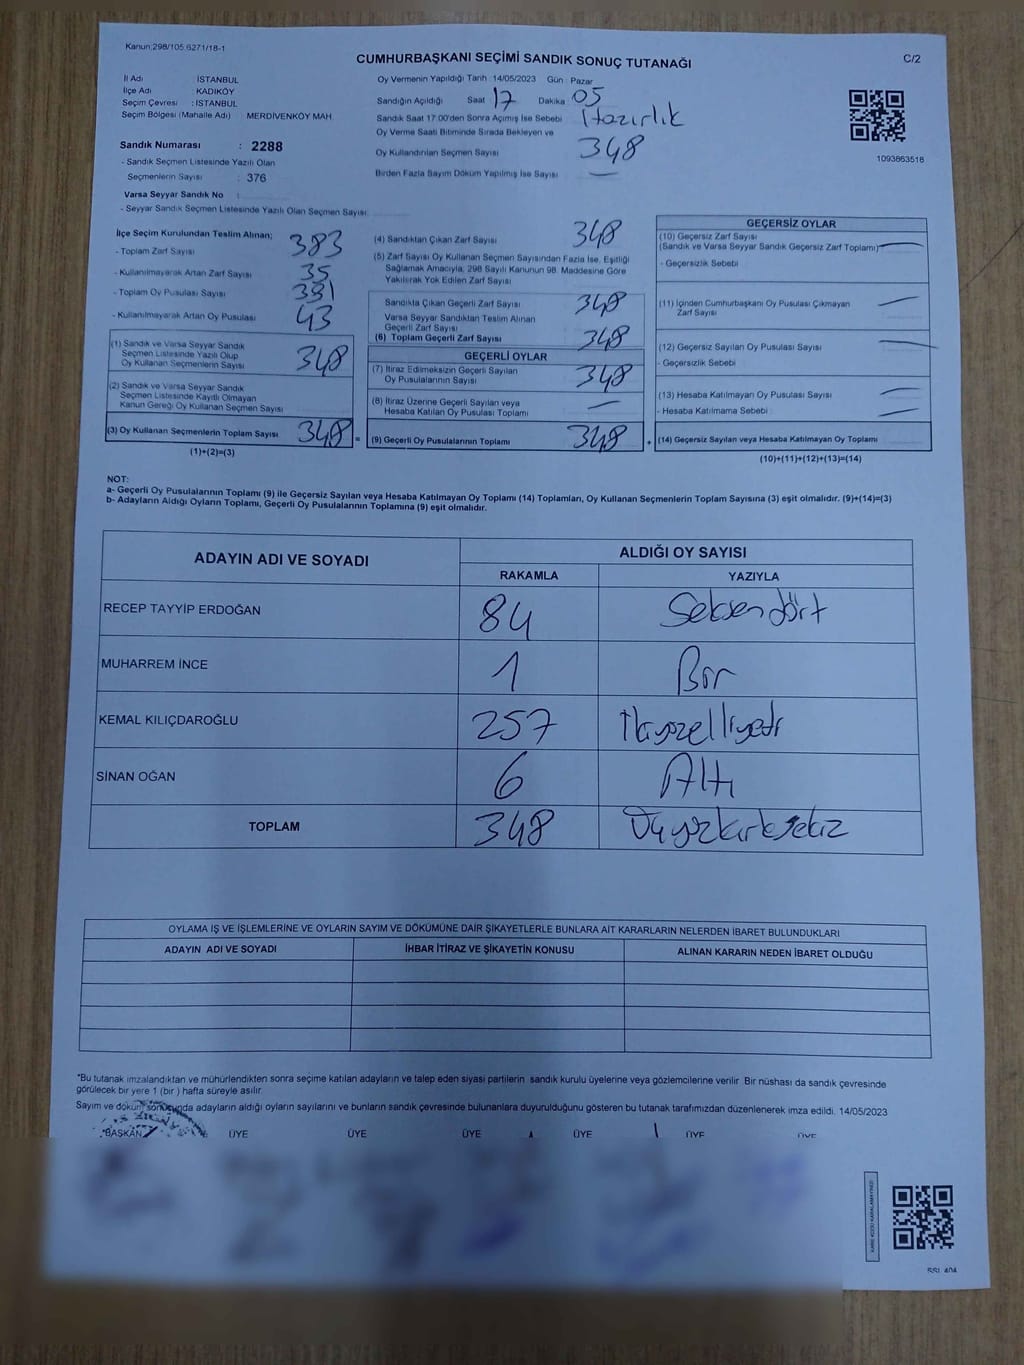 Kanun:298/105,6271/18-1
CUMHURBAŞKANI SEÇİMİ SANDIK SONUÇ TUTANAĞI
C/2
İl Adı İSTANBUL
İlçe Adı KADIKÖY
Seçim Çevresi : İSTANBUL
Seçim Bölgesi (Mahalle Adı) MERDİVENKÖY MAH.
Oy Vermenin Yapıldığı Tarih 14/05/2023 Gün : Pazar
Sandığın Açıldığı Saat 17 Dakika 05
Sandık Saat 17:00'den Sonra Açımış İse Sebebi Hazırlık
Oy Verme Saati Bitiminde Sırada Bekleyen ve
Oy Kullandırılan Seçmen Sayısı 348
Birden Fazla Sayım Döküm Yapılmış İse Sayısı —
1093863516
Sandık Numarası : 2288
- Sandık Seçmen Listesinde Yazılı Olan
Seçmenlerin Sayısı : 376
Varsa Seyyar Sandık No :
- Seyyar Sandık Seçmen Listesinde Yazılı Olan Seçmen Sayısı:
İlçe Seçim Kurulundan Teslim Alınan;
- Toplam Zarf Sayısı 383
- Kullanılmayarak Artan Zarf Sayısı 35
- Toplam Oy Pusulası Sayısı 391
- Kullanılmayarak Artan Oy Pusulası 43
(1) Sandık ve Varsa Seyyar Sandık
Seçmen Listesinde Yazılı Olup
Oy Kullanan Seçmenlerin Sayısı 348
(2) Sandık ve Varsa Seyyar Sandık
Seçmen Listesinde Kayıtlı Olmayan
Kanun Gereği Oy Kullanan Seçmen Sayısı
(3) Oy Kullanan Seçmenlerin Toplam Sayısı 348 =
(1)+(2)=(3)
(4) Sandıktan Çıkan Zarf Sayısı 348
(5) Zarf Sayısı Oy Kullanan Seçmen Sayısından Fazla İse, Eşitliği
Sağlamak Amacıyla, 298 Sayılı Kanunun 98. Maddesine Göre
Yakılarak Yok Edilen Zarf Sayısı
Sandıkta Çıkan Geçerli Zarf Sayısı 348
Varsa Seyyar Sandıktan Teslim Alınan
Geçerli Zarf Sayısı
(6) Toplam Geçerli Zarf Sayısı 348
GEÇERLİ OYLAR
(7) İtiraz Edilmeksizin Geçerli Sayılan
Oy Pusulalarının Sayısı 348
(8) İtiraz Üzerine Geçerli Sayılan veya
Hesaba Katılan Oy Pusulası Toplamı —
(9) Geçerli Oy Pusulalarının Toplamı 348 +
GEÇERSİZ OYLAR
(10) Geçersiz Zarf Sayısı
(Sandık ve Varsa Seyyar Sandık Geçersiz Zarf Toplamı) —
- Geçersizlik Sebebi
(11) İçinden Cumhurbaşkanı Oy Pusulası Çıkmayan
Zarf Sayısı —
(12) Geçersiz Sayılan Oy Pusulası Sayısı —
- Geçersizlik Sebebi
(13) Hesaba Katılmayan Oy Pusulası Sayısı —
- Hesaba Katılmama Sebebi —
(14) Geçersiz Sayılan veya Hesaba Katılmayan Oy Toplamı
(10)+(11)+(12)+(13)=(14)
NOT:
a- Geçerli Oy Pusulalarının Toplamı (9) ile Geçersiz Sayılan veya Hesaba Katılmayan Oy Toplamı (14) Toplamları, Oy Kullanan Seçmenlerin Toplam Sayısına (3) eşit olmalıdır. (9)+(14)=(3)
b- Adayların Aldığı Oyların Toplamı, Geçerli Oy Pusulalarının Toplamına (9) eşit olmalıdır.
ADAYIN ADI VE SOYADI ALDIĞI OY SAYISI
RAKAMLA YAZIYLA
RECEP TAYYİP ERDOĞAN 84 Seksendört
MUHARREM İNCE 1 Bir
KEMAL KILIÇDAROĞLU 257 İkiyüzelliyedi
SİNAN OĞAN 6 Altı
TOPLAM 348 Üçyüzkırksekiz
OYLAMA İŞ VE İŞLEMLERİNE VE OYLARIN SAYIM VE DÖKÜMÜNE DAİR ŞİKAYETLERLE BUNLARA AİT KARARLARIN NELERDEN İBARET BULUNDUKLARI
ADAYIN ADI VE SOYADI İHBAR İTİRAZ VE ŞİKAYETİN KONUSU ALINAN KARARIN NEDEN İBARET OLDUĞU
*Bu tutanak imzalandıktan ve mühürlendikten sonra seçime katılan adayların ve talep eden siyasi partilerin sandık kurulu üyelerine veya gözlemcilerine verilir. Bir nüshası da sandık çevresinde
görülecek bir yere 1 (bir ) hafta süreyle asılır.
Sayım ve döküm sonucunda adayların aldığı oyların sayılarını ve bunların sandık çevresinde bulunanlara duyurulduğunu gösteren bu tutanak tarafımızdan düzenlenerek imza edildi. 14/05/2023
BAŞKAN ÜYE ÜYE ÜYE ÜYE ÜYE ÜYE